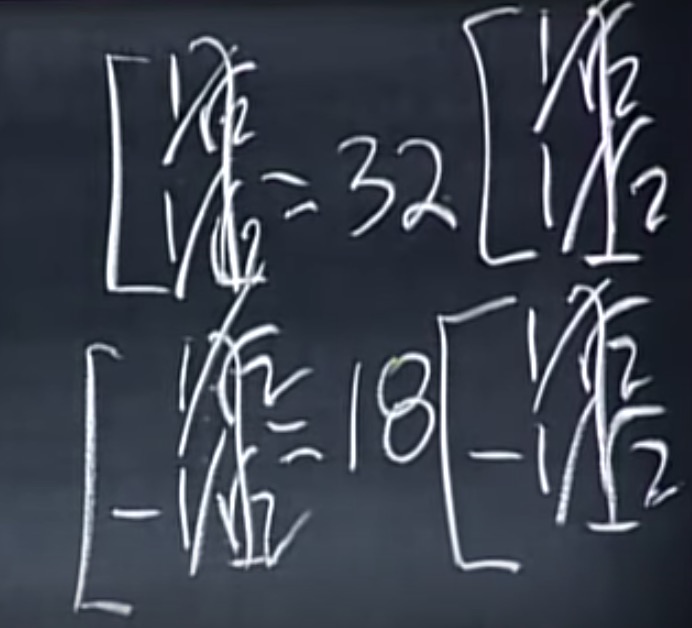 [1/√2
1/√2] = 32 [1/√2
1/√2]
[1/√2
-1/√2] = 18 [1/√2
-1/√2]